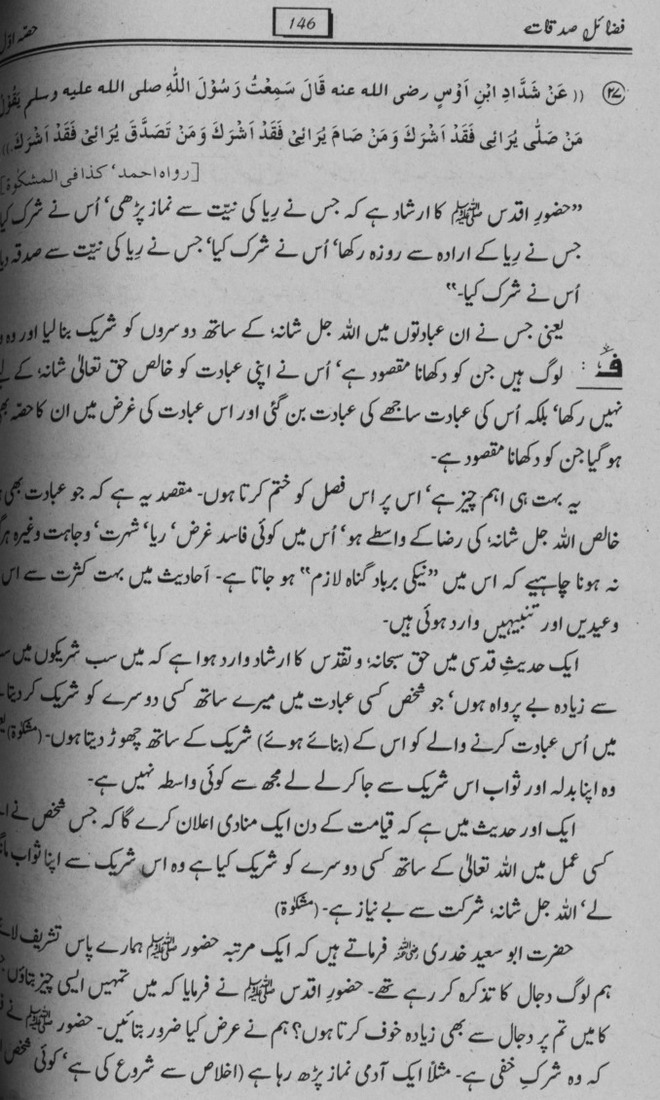 فضائل صدقات 146 حصّہ اوّل
۲۷ (( عَنْ شَدَّادِ ابْنِ اَوْسٍ رضی الله عنه قَالَ سَمِعْتُ رَسُوْلَ اللّٰهِ صلی الله علیه وسلم یَقُوْلُ
مَنْ صَلّٰی یُرَائِی فَقَدْ اَشْرَكَ وَمَنْ صَامَ یُرَائِیْ فَقَدْ اَشْرَكَ وَمَنْ تَصَدَّقَ یُرَائِیْ فَقَدْ اَشْرَكَ.))
[رواہ احمد، کذا فی المشکوٰۃ]
”حضورِ اقدس ﷺ کا ارشاد ہے کہ جس نے رِیا کی نیّت سے نماز پڑھی‘ اُس نے شرک کیا
جس نے رِیا کے ارادہ سے روزہ رکھا‘ اُس نے شرک کیا‘ جس نے رِیا کی نیّت سے صدقہ دیا
اُس نے شرک کیا۔“
یعنی جس نے ان عبادتوں میں اللہ جل شانہٗ کے ساتھ دوسروں کو شریک بنا لیا اور وہ
ف : لوگ ہیں جن کو دکھانا مقصود ہے‘ اُس نے اپنی عبادت کو خالص حق تعالیٰ شانہٗ کے
نہیں رکھا‘ بلکہ اُس کی عبادت ساجھے کی عبادت بن گئی اور اس عبادت کی غرض میں ان کا حصّہ بھی
ہو گیا جن کو دکھانا مقصود ہے۔
یہ بہت ہی اہم چیز ہے‘ اس پر اس فصل کو ختم کرتا ہوں۔ مقصد یہ ہے کہ جو عبادت بھی
خالص اللہ جل شانہٗ کی رضا کے واسطے ہو‘ اُس میں کوئی فاسد غرض‘ ریا‘ شہرت‘ وجاہت وغیرہ
نہ ہونا چاہیے کہ اس میں ”نیکی برباد گناہ لازم“ ہو جاتا ہے۔ اَحادیث میں بہت کثرت سے اس
وعیدیں اور تنبیہیں وارد ہوئی ہیں۔
ایک حدیثِ قدسی میں حق سبحانہٗ و تقدّس کا ارشاد وارد ہوا ہے کہ میں سب شریکوں میں
سے زیادہ بے پرواہ ہوں‘ جو شخص کسی عبادت میں میرے ساتھ کسی دوسرے کو شریک کر دیتا
میں اُس عبادت کرنے والے کو اس کے (بنائے ہوئے) شریک کے ساتھ چھوڑ دیتا ہوں۔ (مشکوٰۃ)
وہ اپنا بدلہ اور ثواب اس شریک سے جا کر لے لے مجھ سے کوئی واسطہ نہیں ہے۔
ایک اور حدیث میں ہے کہ قیامت کے دن ایک منادی اعلان کرے گا کہ جس شخص نے
کسی عمل میں اللہ تعالیٰ کے ساتھ کسی دوسرے کو شریک کیا ہے وہ اس شریک سے اپنا ثواب
لے‘ اللہ جل شانہٗ شرکت سے بے نیاز ہے۔ (مشکوٰۃ)
حضرت ابو سعید خدری رضی اللہ عنہ فرماتے ہیں کہ ایک مرتبہ حضور ﷺ ہمارے پاس تشریف
ہم لوگ دجال کا تذکرہ کر رہے تھے۔ حضورِ اقدس ﷺ نے فرمایا کہ میں تمہیں ایسی چیز بتاؤں
کا میں تم پر دجال سے بھی زیادہ خوف کرتا ہوں؟ ہم نے عرض کیا ضرور بتائیں۔ حضور ﷺ نے
کہ وہ شرکِ خفی ہے۔ مثلاً ایک آدمی نماز پڑھ رہا ہے (اخلاص سے شروع کی ہے‘ کوئی شخص